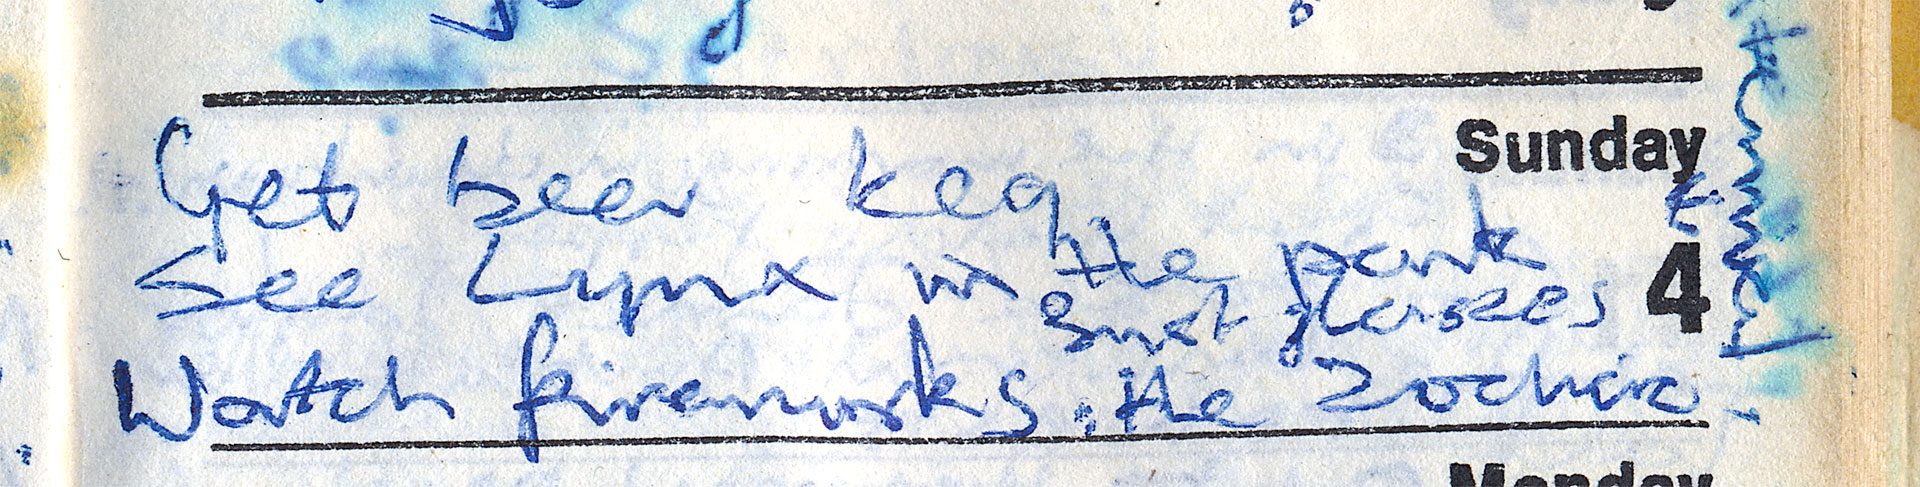 Sunday
4
Get beer keg.
See Lynx in the park
glasses
Watch fireworks, the Zodiac
Monday